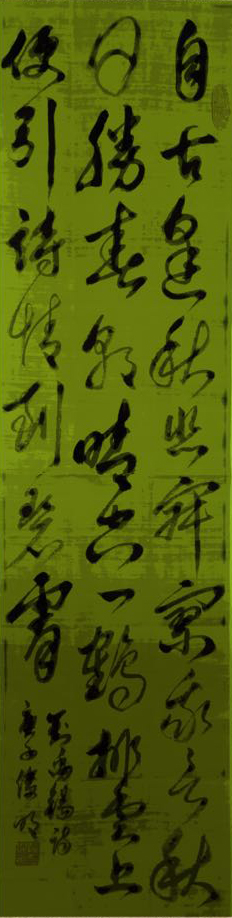 自古逢秋悲寂寥我言秋
日勝春朝晴空一鶴排雲上
便引詩情到碧霄
劉禹錫詩
庚子